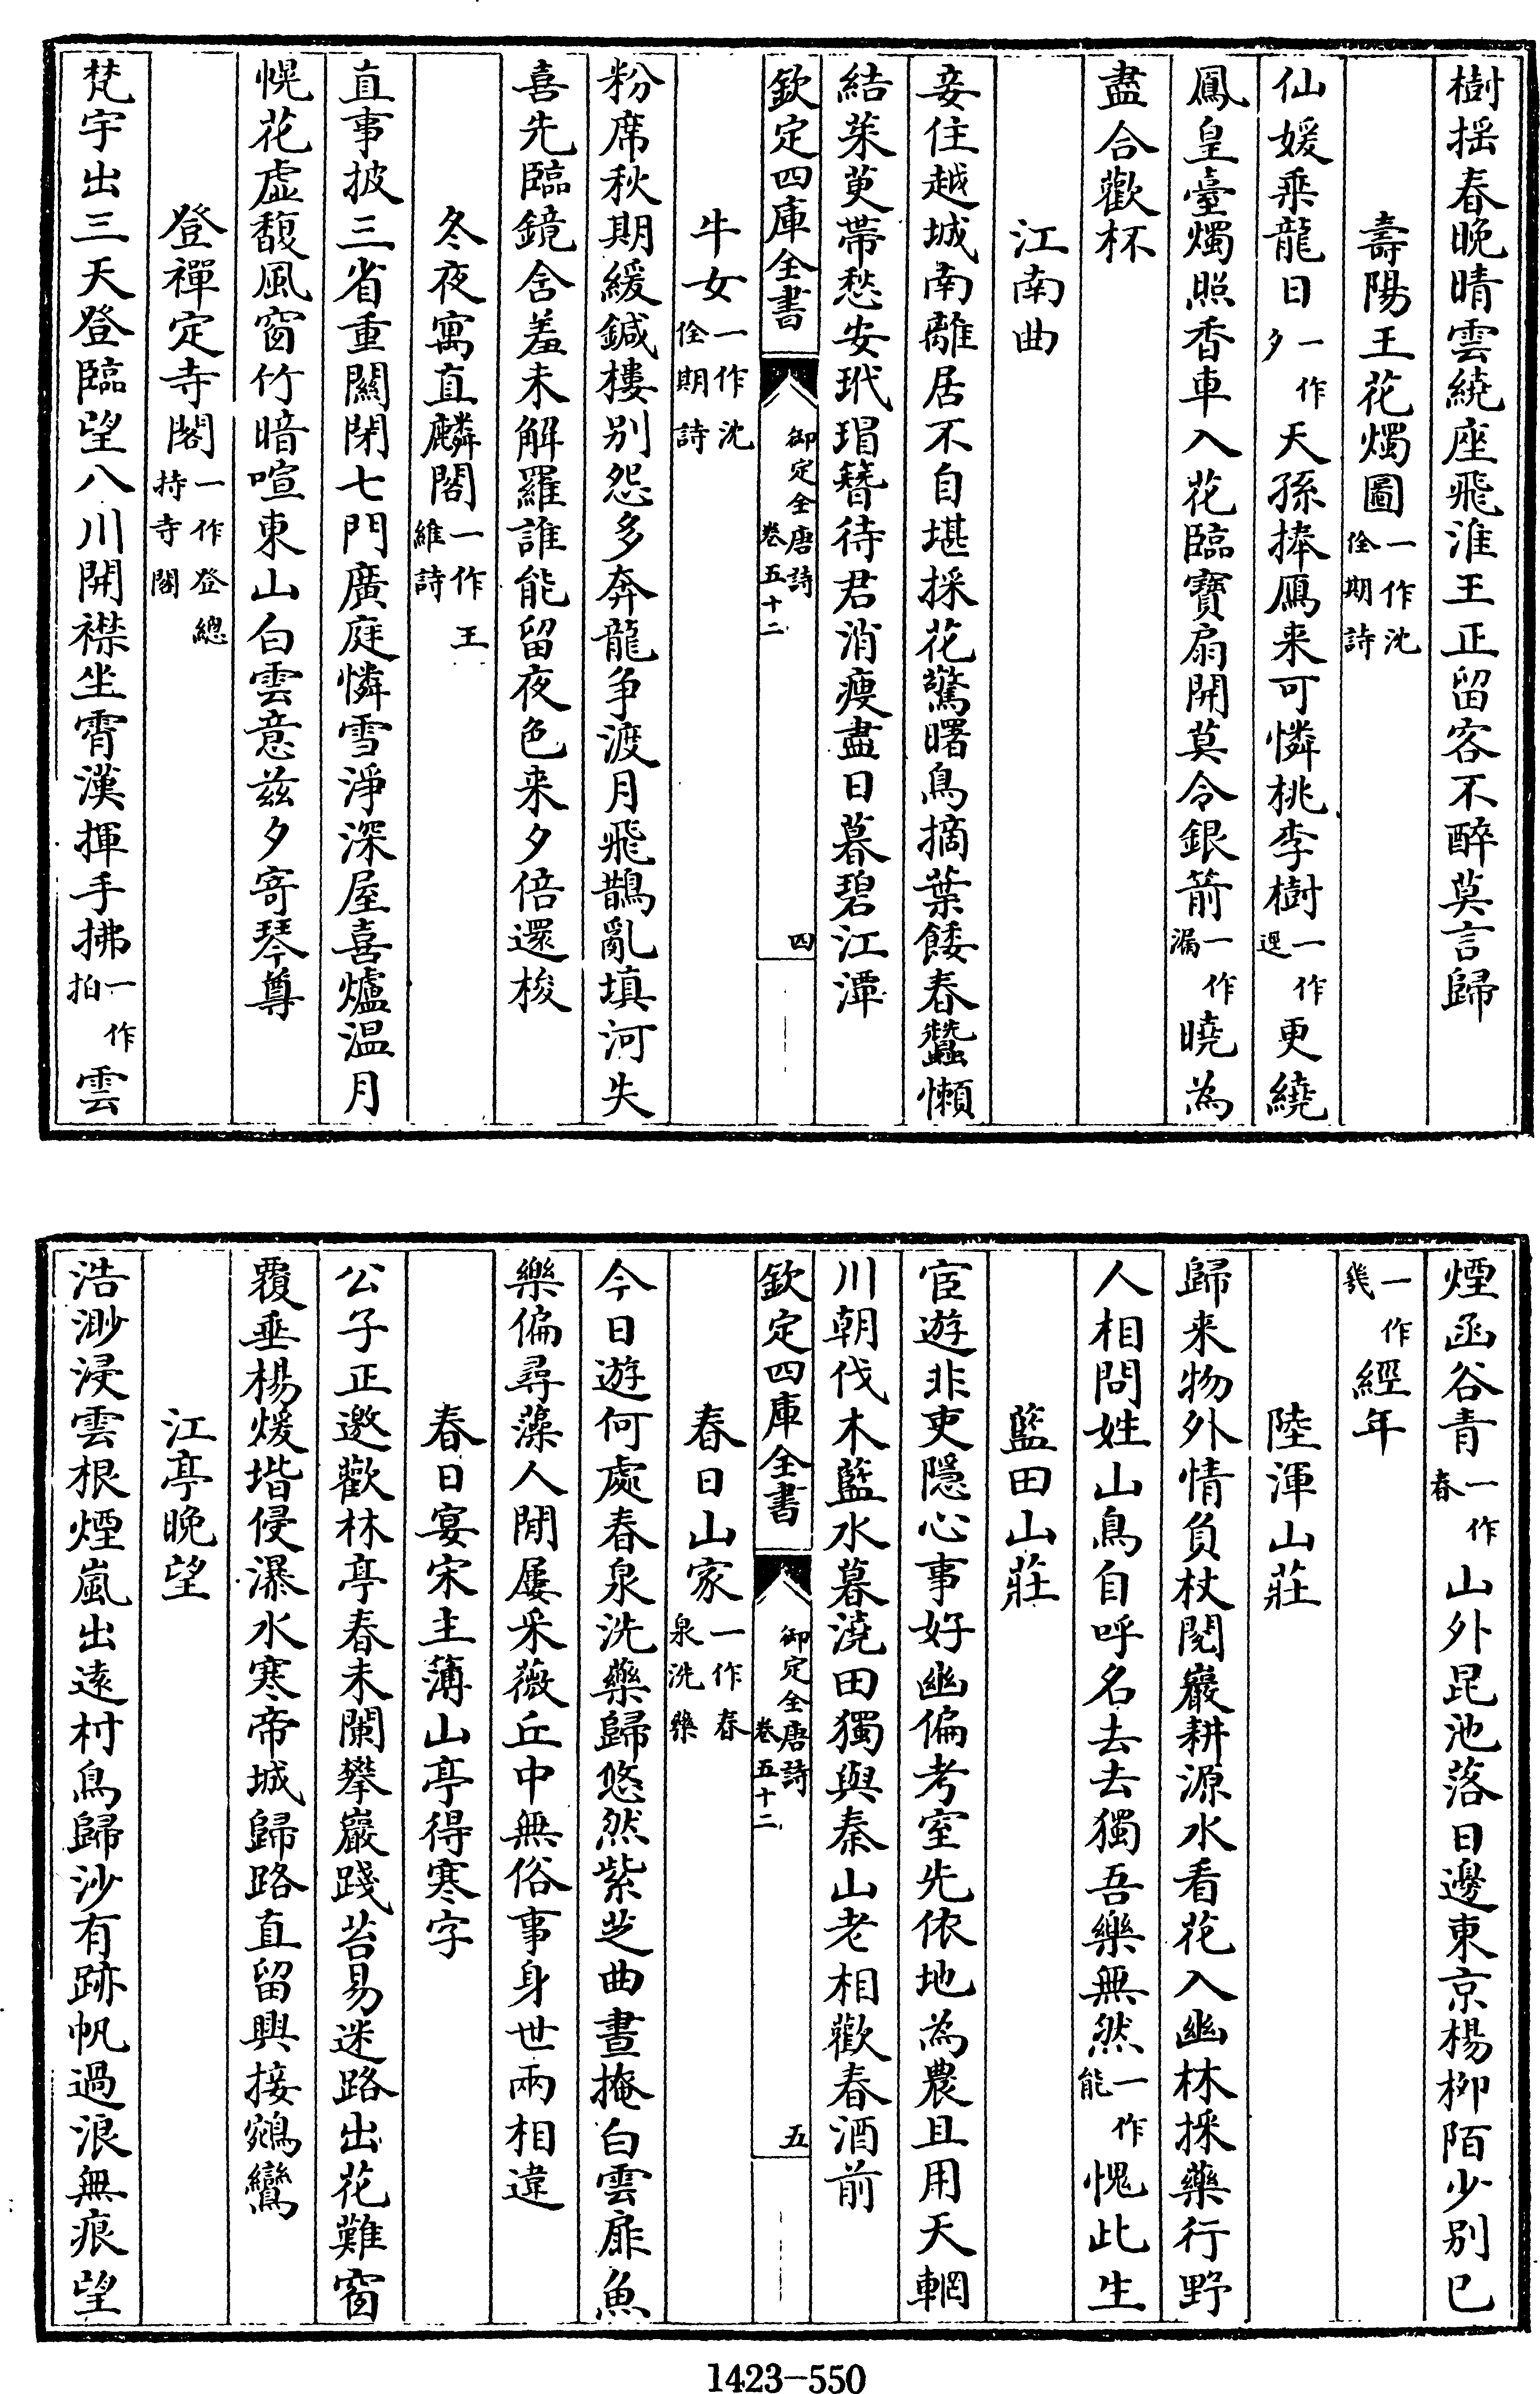 樹揺春晚晴雲繞座飛淮王正留客不醉莫言歸
壽陽王花燭圖一作沈佺期詩
仙媛乗龍日一作夕天孫捧鴈来可憐桃李樹一作逕更繞
鳳皇臺燭照香車入花臨寶扇開莫令銀箭一作漏曉為
盡合歡杯
江南曲
妾住越城南離居不自堪採花驚曙鳥摘葉餧春蠶懶
結茱萸帶愁安玳瑁簪待君消瘦盡日暮碧江潭
欽定四庫全書
御定全唐詩
卷五十二
四
牛女一作沈佺期詩
粉席秋期緩鍼樓别怨多奔龍争渡月飛鵲亂填河失
喜先臨鏡含羞未解羅誰能留夜色来夕倍還梭
冬夜寓直麟閣一作王維詩
直事披三省重關閉七門廣庭憐雪淨深屋喜爐温月
幌花虚馥風窗竹暗喧東山白雲意兹夕寄琴尊
登禪定寺閣一作登總持寺閣
梵宇出三天登臨望八川開襟坐霄漢揮手拂一作拍雲
煙函谷青一作春山外昆池落日邊東京楊柳陌少别已
一作幾經年
陸渾山莊
歸来物外情負杖閱巖耕源水看花入幽林採藥行野
人相問姓山鳥自呼名去去獨吾樂無然一作能愧此生
藍田山莊
宦遊非吏隱心事好幽偏考室先依地為農且用天輞
川朝伐木藍水暮澆田獨與秦山老相歡春酒前
欽定四庫全書
御定全唐詩
卷五十二
五
春日山家一作春泉洗藥
今日遊何處春泉洗藥歸悠然紫芝曲晝掩白雲扉魚
樂偏尋藻人閒屢采薇丘中無俗事身世兩相違
春日宴宋主薄山亭得寒字
公子正邀歡林亭春未闌攀巖踐苔易迷路出花難窗
覆垂楊煖堦侵瀑水寒帝城歸路直留興接鵷鸞
江亭晚望
浩渺浸雲根煙嵐出逺村鳥歸沙有跡帆過浪無痕望
1423-550